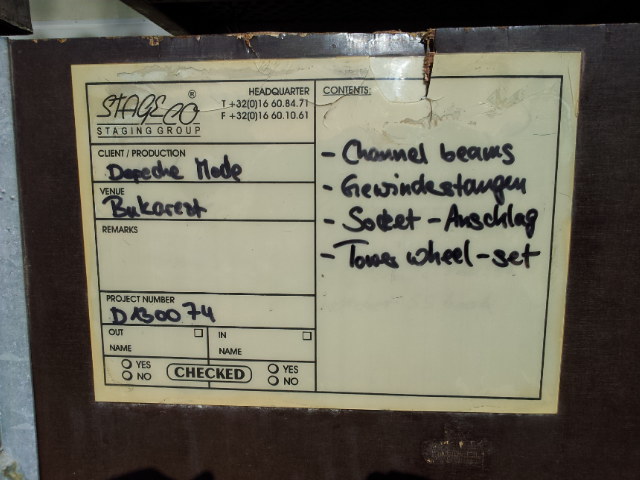 STAGECO ®
STAGING GROUP
HEADQUARTER
T +32(0)16 60.84.71
F +32(0)16 60.10.61
CLIENT / PRODUCTION
Depeche Mode
VENUE
Bukarest
REMARKS
PROJECT NUMBER
D130074
OUT
NAME
IN
NAME
YES
NO
CHECKED
YES
NO
CONTENTS:
- Channel beams
- Gewindestangen
- Socket - Anschlag
- Tower wheel - set